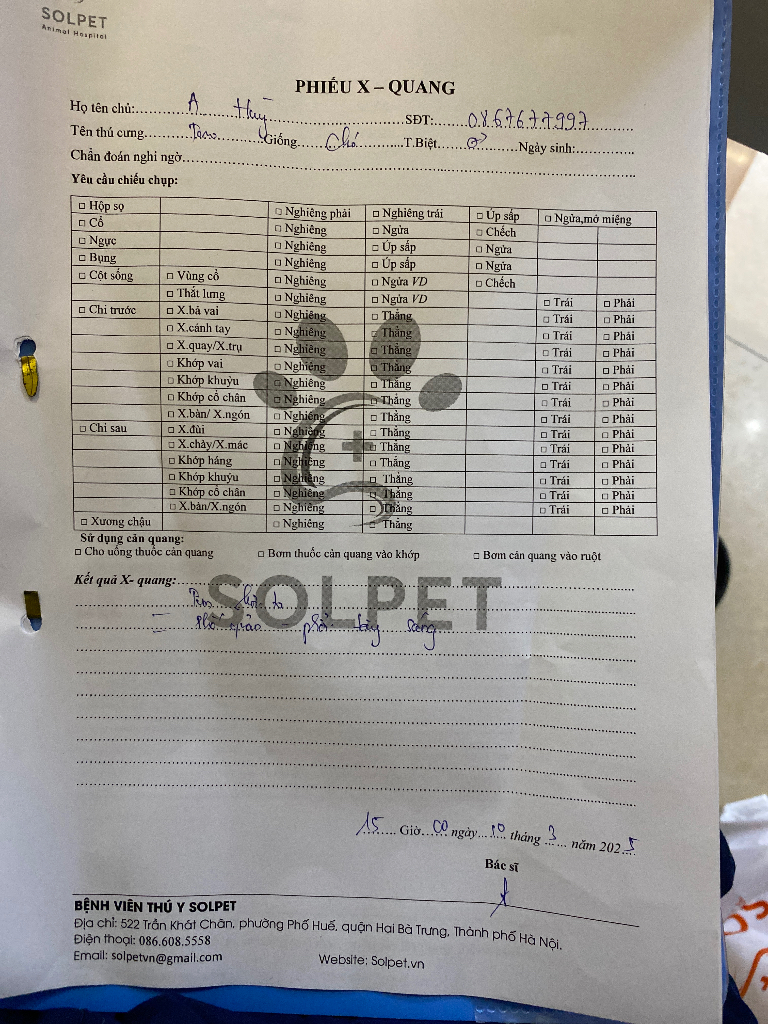 SOLPET
Animal Hospital
PHIẾU X – QUANG
Họ tên chủ: A Hùng SĐT: 0867677997
Tên thú cưng Giống Chó T.Biệt ♂ Ngày sinh:
Chẩn đoán nghi ngờ
Yêu cầu chiếu chụp:
□ Hộp sọ □ Nghiêng phải □ Nghiêng trái □ Úp sấp □ Ngửa,mở miệng
□ Cổ □ Nghiêng □ Ngửa □ Chếch
□ Ngực □ Nghiêng □ Úp sấp □ Ngửa
□ Bụng □ Nghiêng □ Úp sấp □ Ngửa
□ Cột sống □ Vùng cổ □ Nghiêng □ Ngửa VD □ Chếch
□ Thắt lưng □ Nghiêng □ Ngửa VD □ Trái □ Phải
□ Chi trước □ X.bả vai □ Nghiêng □ Thẳng □ Trái □ Phải
□ X.cánh tay □ Nghiêng □ Thẳng □ Trái □ Phải
□ X.quay/X.trụ □ Nghiêng □ Thẳng □ Trái □ Phải
□ Khớp vai □ Nghiêng □ Thẳng □ Trái □ Phải
□ Khớp khuỷu □ Nghiêng □ Thẳng □ Trái □ Phải
□ Khớp cổ chân □ Nghiêng □ Thẳng □ Trái □ Phải
□ X.bàn/ X.ngón □ Nghiêng □ Thẳng □ Trái □ Phải
□ Chi sau □ X.đùi □ Nghiêng □ Thẳng □ Trái □ Phải
□ X.chày/X.mác □ Nghiêng □ Thẳng □ Trái □ Phải
□ Khớp háng □ Nghiêng □ Thẳng □ Trái □ Phải
□ Khớp khuỷu □ Nghiêng □ Thẳng □ Trái □ Phải
□ Khớp cổ chân □ Nghiêng □ Thẳng □ Trái □ Phải
□ X.bàn/X.ngón □ Nghiêng □ Thẳng □ Trái □ Phải
□ Xương chậu □ Nghiêng □ Thẳng
Sử dụng cản quang:
□ Cho uống thuốc cản quang □ Bơm thuốc cản quang vào khớp □ Bơm cản quang vào ruột
Kết quả X- quang:
SOLPET
to
- phổi tăng sáng
15 Giờ 00 ngày 10 tháng 3 năm 2025
Bác sĩ
BỆNH VIÊN THÚ Y SOLPET
Địa chỉ: 522 Trần Khát Chân, phường Phố Huế, quận Hai Bà Trưng, Thành phố Hà Nội.
Điện thoại: 086.608.5558
Email: solpetvn@gmail.com Website: Solpet.vn